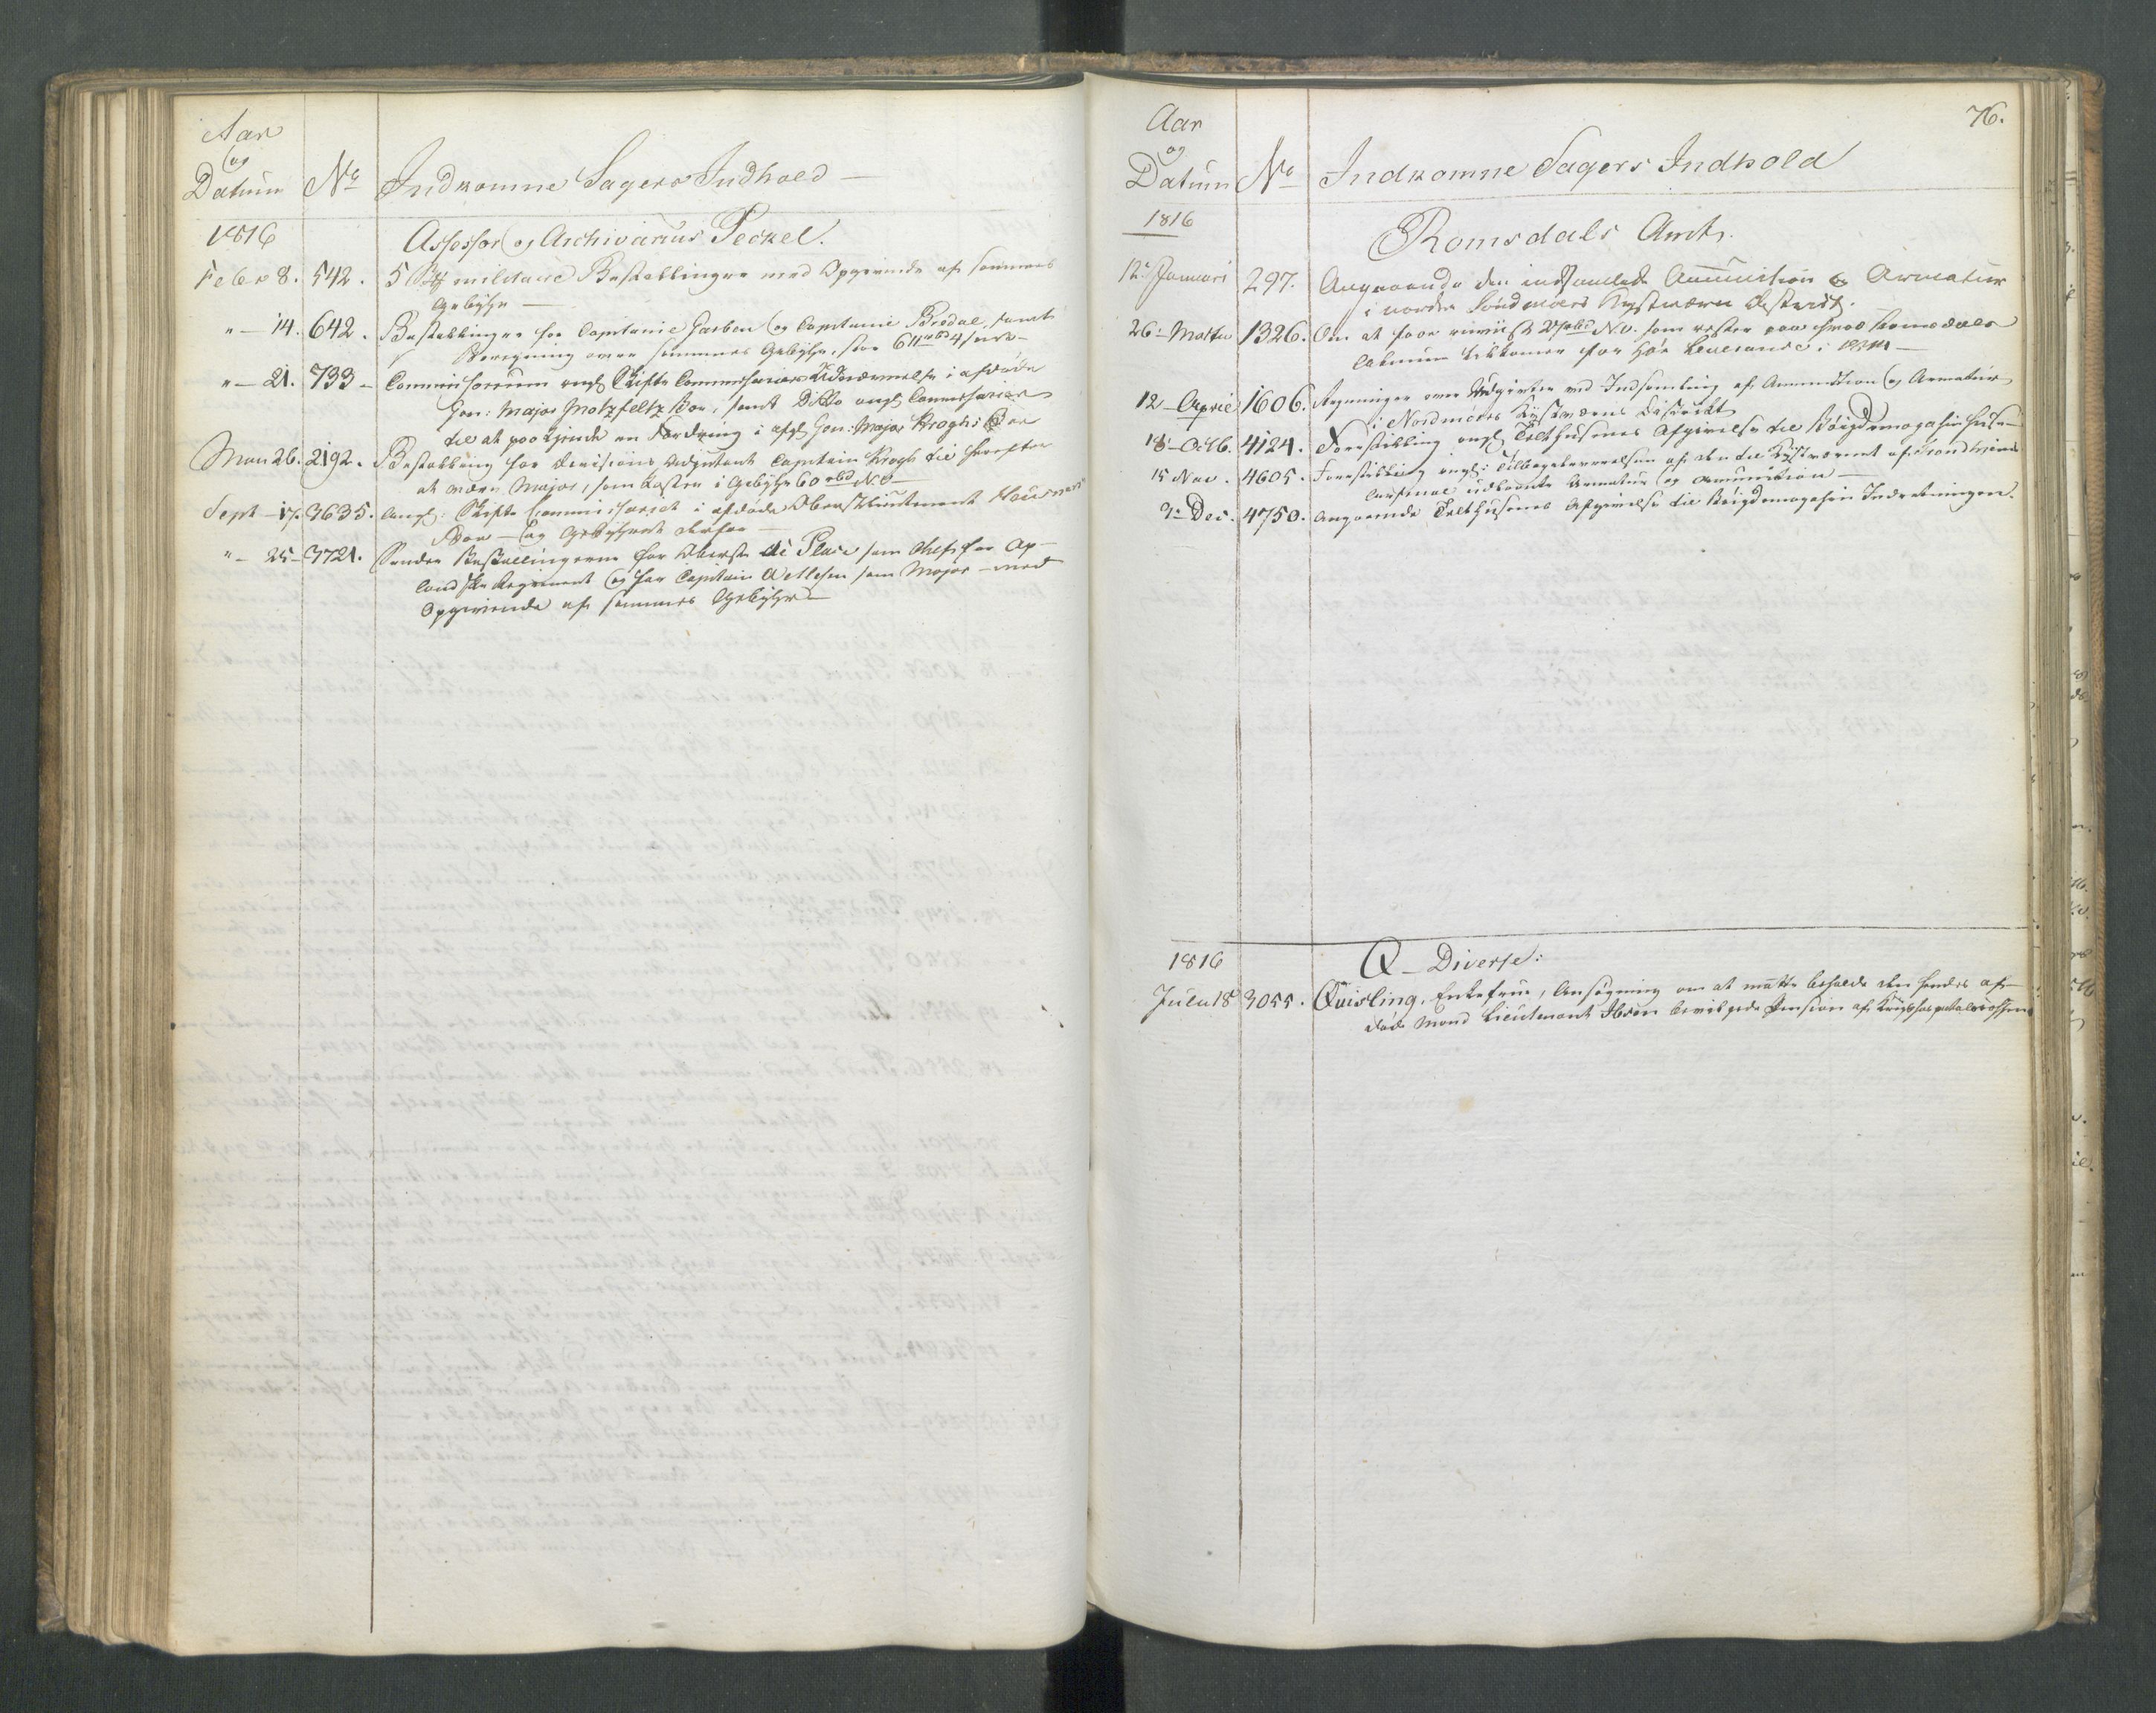 Aar
og
Datum No Indkomne Sagers Indhold
1816 Assessor og Archivarius Peckel.
Febr 8. 542. 5 militaire Bestallinger med Opgivende af sammes
Gebyhr
" 14. 642. Bestallinger for Capitaine Garben og Capitaine Bredal, samt
Beregning over sammes Gebyhr, stor
" 21. 733 Commissorium angl Skifte Commissariers Udnævnelse i afdøde
Gen: Major Motzfeltz Boe, samt Ditto angl Commissarier
til at paakjende en Fordring i afgl Gen: Major Kroghs Boe
2192. Bestalling for Divisions Adjutant Capitain Krogh til herefter
at være Major, som koster i Gebyhr 60 rbd NV
Sept 17. 3635. Angl: Skifte Commissoriet i afdøde Oberstlieutenant
Boe og Gebyhret derfor
" 25 3721. Sender Bestallingerne for Oberst de Place som Chef for Op-
landske Regiment og for Capitain Wettesen som Major med
Opgivende af sammes Gebyhr
76.
Aar
og
Datum No Indkomne Sagers Indhold
1816
Romsdals Amt.
12 Januari 297. Angaaende den indsamlede Ammunition og Armatur
i nordre Søndmørs Kystværn District.
26 Martii 1326. Om at faae NV. som rester paa hvad Romsdals
tilkommer for Hør Leverance i 1814
12 April 1606. Regninger over Udgivter ved Indsamling af Ammunition og Armatur
i Nordmørs Kystværns District
18 Octb. 4124. Forestilling angl Telthusenes Afgivelse til Bøigdemagasin Huse
15 Nov. 4605. Forestilling angl: Tilbageleverelsen af den til Kystværnet af Trondhiems
Arsenal udlaante Armatur og Amunition
3 Dec. 4750. Angaaende Telthusenes Afgivelse til Bøigdemagasin Indretningen.
1816 Q Diverse:
Julii 18 3055. Quisling, Enkefrue, Ansøgning om at maatte beholde den hendes af-
døde Mand Lieutenant Ibsen bevilgede Pension af Krigshospitalscassen